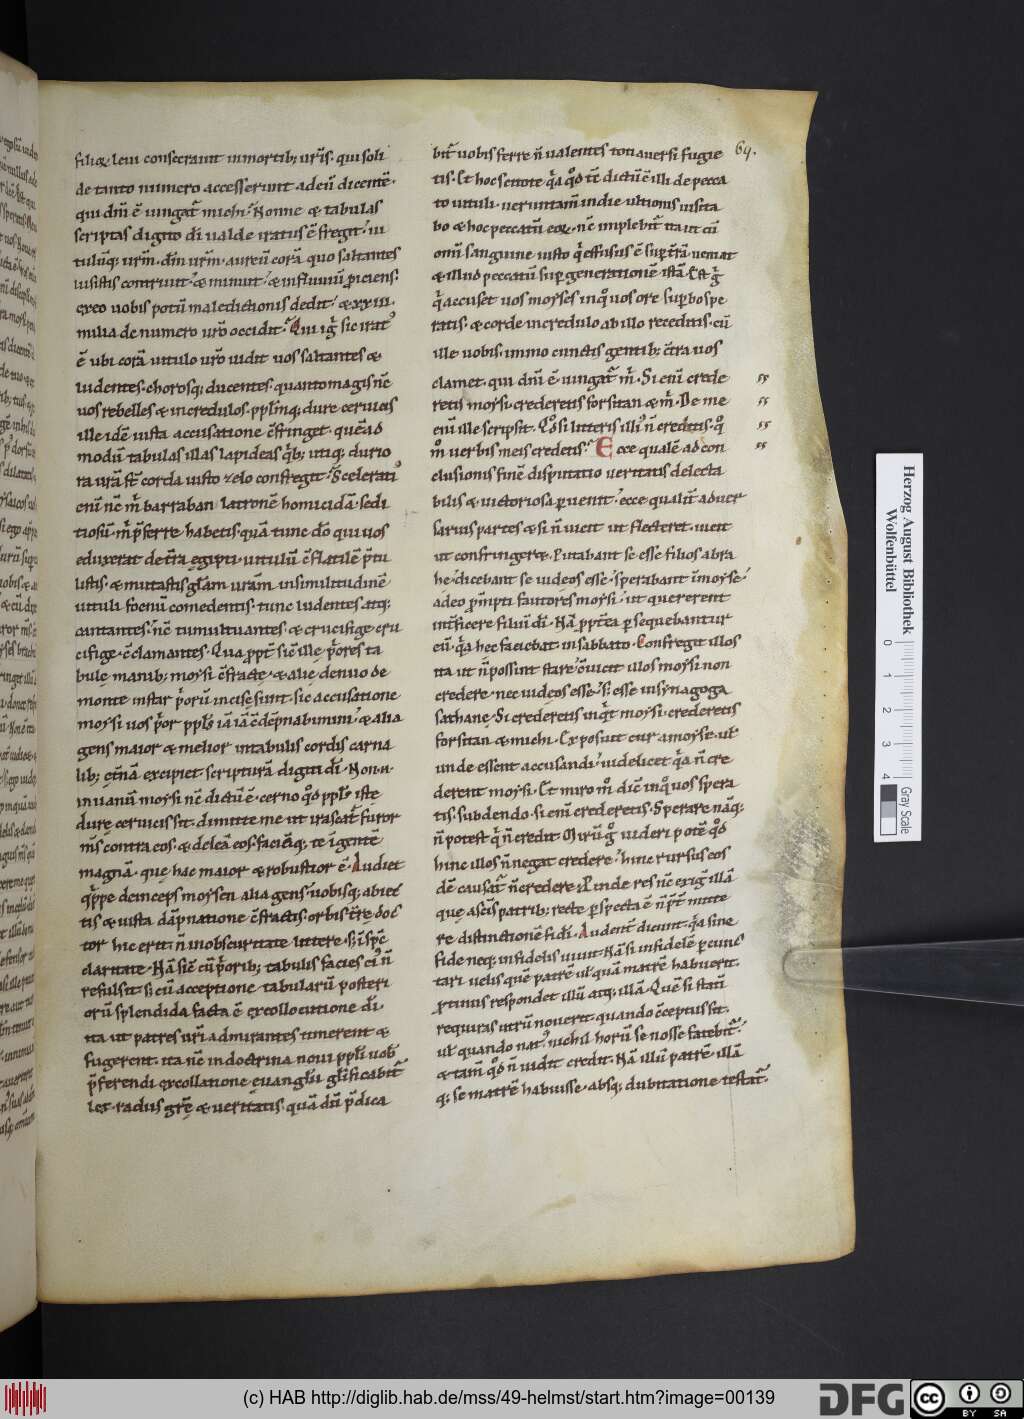 filioꝝ leui consecrauit inmortib; ur̃is. qui soli
de tanto numero accesserunt adeũ dicentẽ.
qui dñi ẽ iungat᷑ michi. Nonne & tabulas
scriptas digito di ualde iratus c̃fregit. ui
tulũq; ur̃m. dñm ur̃m. aureũ corã quo saltantes
lusistis contriuit. & minuit. & influuiũ proiciens.
exeo uobis potũ maledictionis dedit. & xxiii.
milia de numero ur̃o occidit. Qui ig̃ sic irat᷒
ẽ ubi corã uitulo ur̃o uidit uos saltantes &
ludentes. chorosq; ducentes. quanto magis nc̃
uos rebelles & incredulos. pp̃lm̃q; dure ceruicis
ille idẽ iusta accusatione c̃fringet. quẽad
modũ tabulas illas lapideas q̃b; utiq; durio
ra ur̃a st̃ corda iusto zelo confregit. Scelerati᷒
eni nc̃ m̃ barraban latronẽ homicidã sedi
tiosũ. m̃ p̃ferre habetis. quã tunc dõ qui uos
eduxerat de t̃ra egipti. uitulũ c̃flatilẽ p̃tu
listis. & mutastis gl̃am ur̃am insimilitudinẽ
uituli foenũ comedentis. tunc ludentes. atq;
cantantes. nc̃ tumultuantes & crucifige cru
cifige. c̃clamantes. Quapropt̃ sic ille p̃ores ta
bule manib; moysi c̃fracte. & alie denuo de
monte instar p̃orũ incise sunt. sic accusatione
moysi uos p̃or pp̃ls iã iã c̃dẽpnabimini. & alia
gens maior & melior intabulis cordis carna
lib; et̃nã excipiet scripturã digiti di. Non. n.
inuanũ moysi nc̃ dictũ ẽ. cerno q̊d pp̃ls iste
dure ceruicis sit. dimitte me ut irascat᷑ furor
m̃s contra eos. & deleã eos. faciãq; te ĩ gentẽ
magnã. que hac maior & robustior ẽ. Audiet
q̃ppe deinceps moysen alia gens. uobisq; abiec̃
tis & iusta dãpnatione c̃fractis. orbis t̃re doc̃
tor hic erit. ñ inobscuritate littere. s; ĩ sp̃c
claritate. Nã sic cũ p̃orib; tabulis facies ei᷒ ñ
refulsit. s; cũ acceptione tabularũ posteri
orũ splendida facta ẽ ex collocutione di.
ita ut patres ur̃i admirantes timerent &
fugerent. ita nc̃ indoctrina noui pp̃li uob̃
p̃ferendi ex collatione euangl̃ii gl̃ificabit᷑
lex. radius gr̃e & ueritatis. quã dũ p̃dica
64.
bit᷑ uobis ferre ñ ualentes tot auersi fugie
tis. Et hoc scitote q̃a q̊d tc̃ dictũ ẽ illi de pecca
to uituli. ueruntam̃ indie ultionis uisita
bo & hoc peccatũ eoꝝ. nc̃ implebit᷑ ita ut cũ
omni sanguine iusto q̃ effusus ẽ sup̃ t̃rã. ueniat
& illud peccatũ sup̃ generationẽ istã. Est g̃
q̃ accuset uos moyses inq̊ uos ore sup̃bo spe
ratis. & corde incredulo ab illo receditis. cũ
ille uobis. immo cunctis gentib; c̃tra uos
clamet. qui dñi ẽ. iungat᷑ m̃. Si eni crede
retis moysi. crederetis forsitan & m̃. De me
eni ille scripsit. Q̊d si litteris illi᷒ ñ creditis. q̊
m̊ uerbis meis credetis. Ecce qualẽ ad con
clusionis finẽ disputatio ueritatis delecta
bilis & uictoriosa p̱uenit. ecce qualit̃ aduer
sarias partes & si ñ uicit ut flecteret. uicit
ut confringeret. Putabant se esse filios abra
he. dicebant se iudeos esse. sperabant ĩ moyse.
adeo p̃mpti fautores moysi. ut quererent
int̃ficere filiũ di. Nã p̱pt̃ea p̱sequebantur
eũ. q̃a hec faciebat insabbato. Confregit illos
ita ut ñ possint stare. c̃uicit illos moysi non
credere. nec iudeos esse. s; esse insynagoga
sathane. Si crederetis inq̃t moysi. crederetis
forsitan & michi. Exposuit cur a moyse. ul̃
unde essent accusandi. uidelicet q̃a ñ cre
derent moysi. Et miro m̊ dic̃ inq̊ uos spera
tis. subdendo. si eni crederetis. Sperare nãq;
ñ potest q̃ ñ credit. Mirũ g̊ uideri potẽ q̊d
hinc illos ñ negat credere. hinc rursus eos
dẽ causat᷑ ñ credere. Proinde res nc̃ exig̃ illã
que ascis patrib; recte p̱specta ẽ ñ p̃t̃mitte
re distinctionẽ fidi. Audent᷑ dicunt. q̃a sine
fide neq; infideles uiuit. Nã si infidelẽ p̱cunc̃
tari uelis quẽ patrẽ ul̃ quã matrẽ habuerit.
p̱tinus respondet illũ atq; illã. Quẽ si stati
requiras utrũ nouerit. quando c̃ceptus sit.
ul̃ quando nat᷒. nichil horũ se nosse fatebit᷑.
& tam̃ q̊d ñ uidit credit. Nã illũ patrẽ. illã
q; se matrẽ habuisse. absq; dubitatione testat᷑.
Herzog August Bibliothek
Wolfenbüttel
0 1 2 3 4
Gray Scale
(c) HAB http://diglib.hab.de/mss/49-helmst/start.htm?image=00139
DFG
cc BY SA